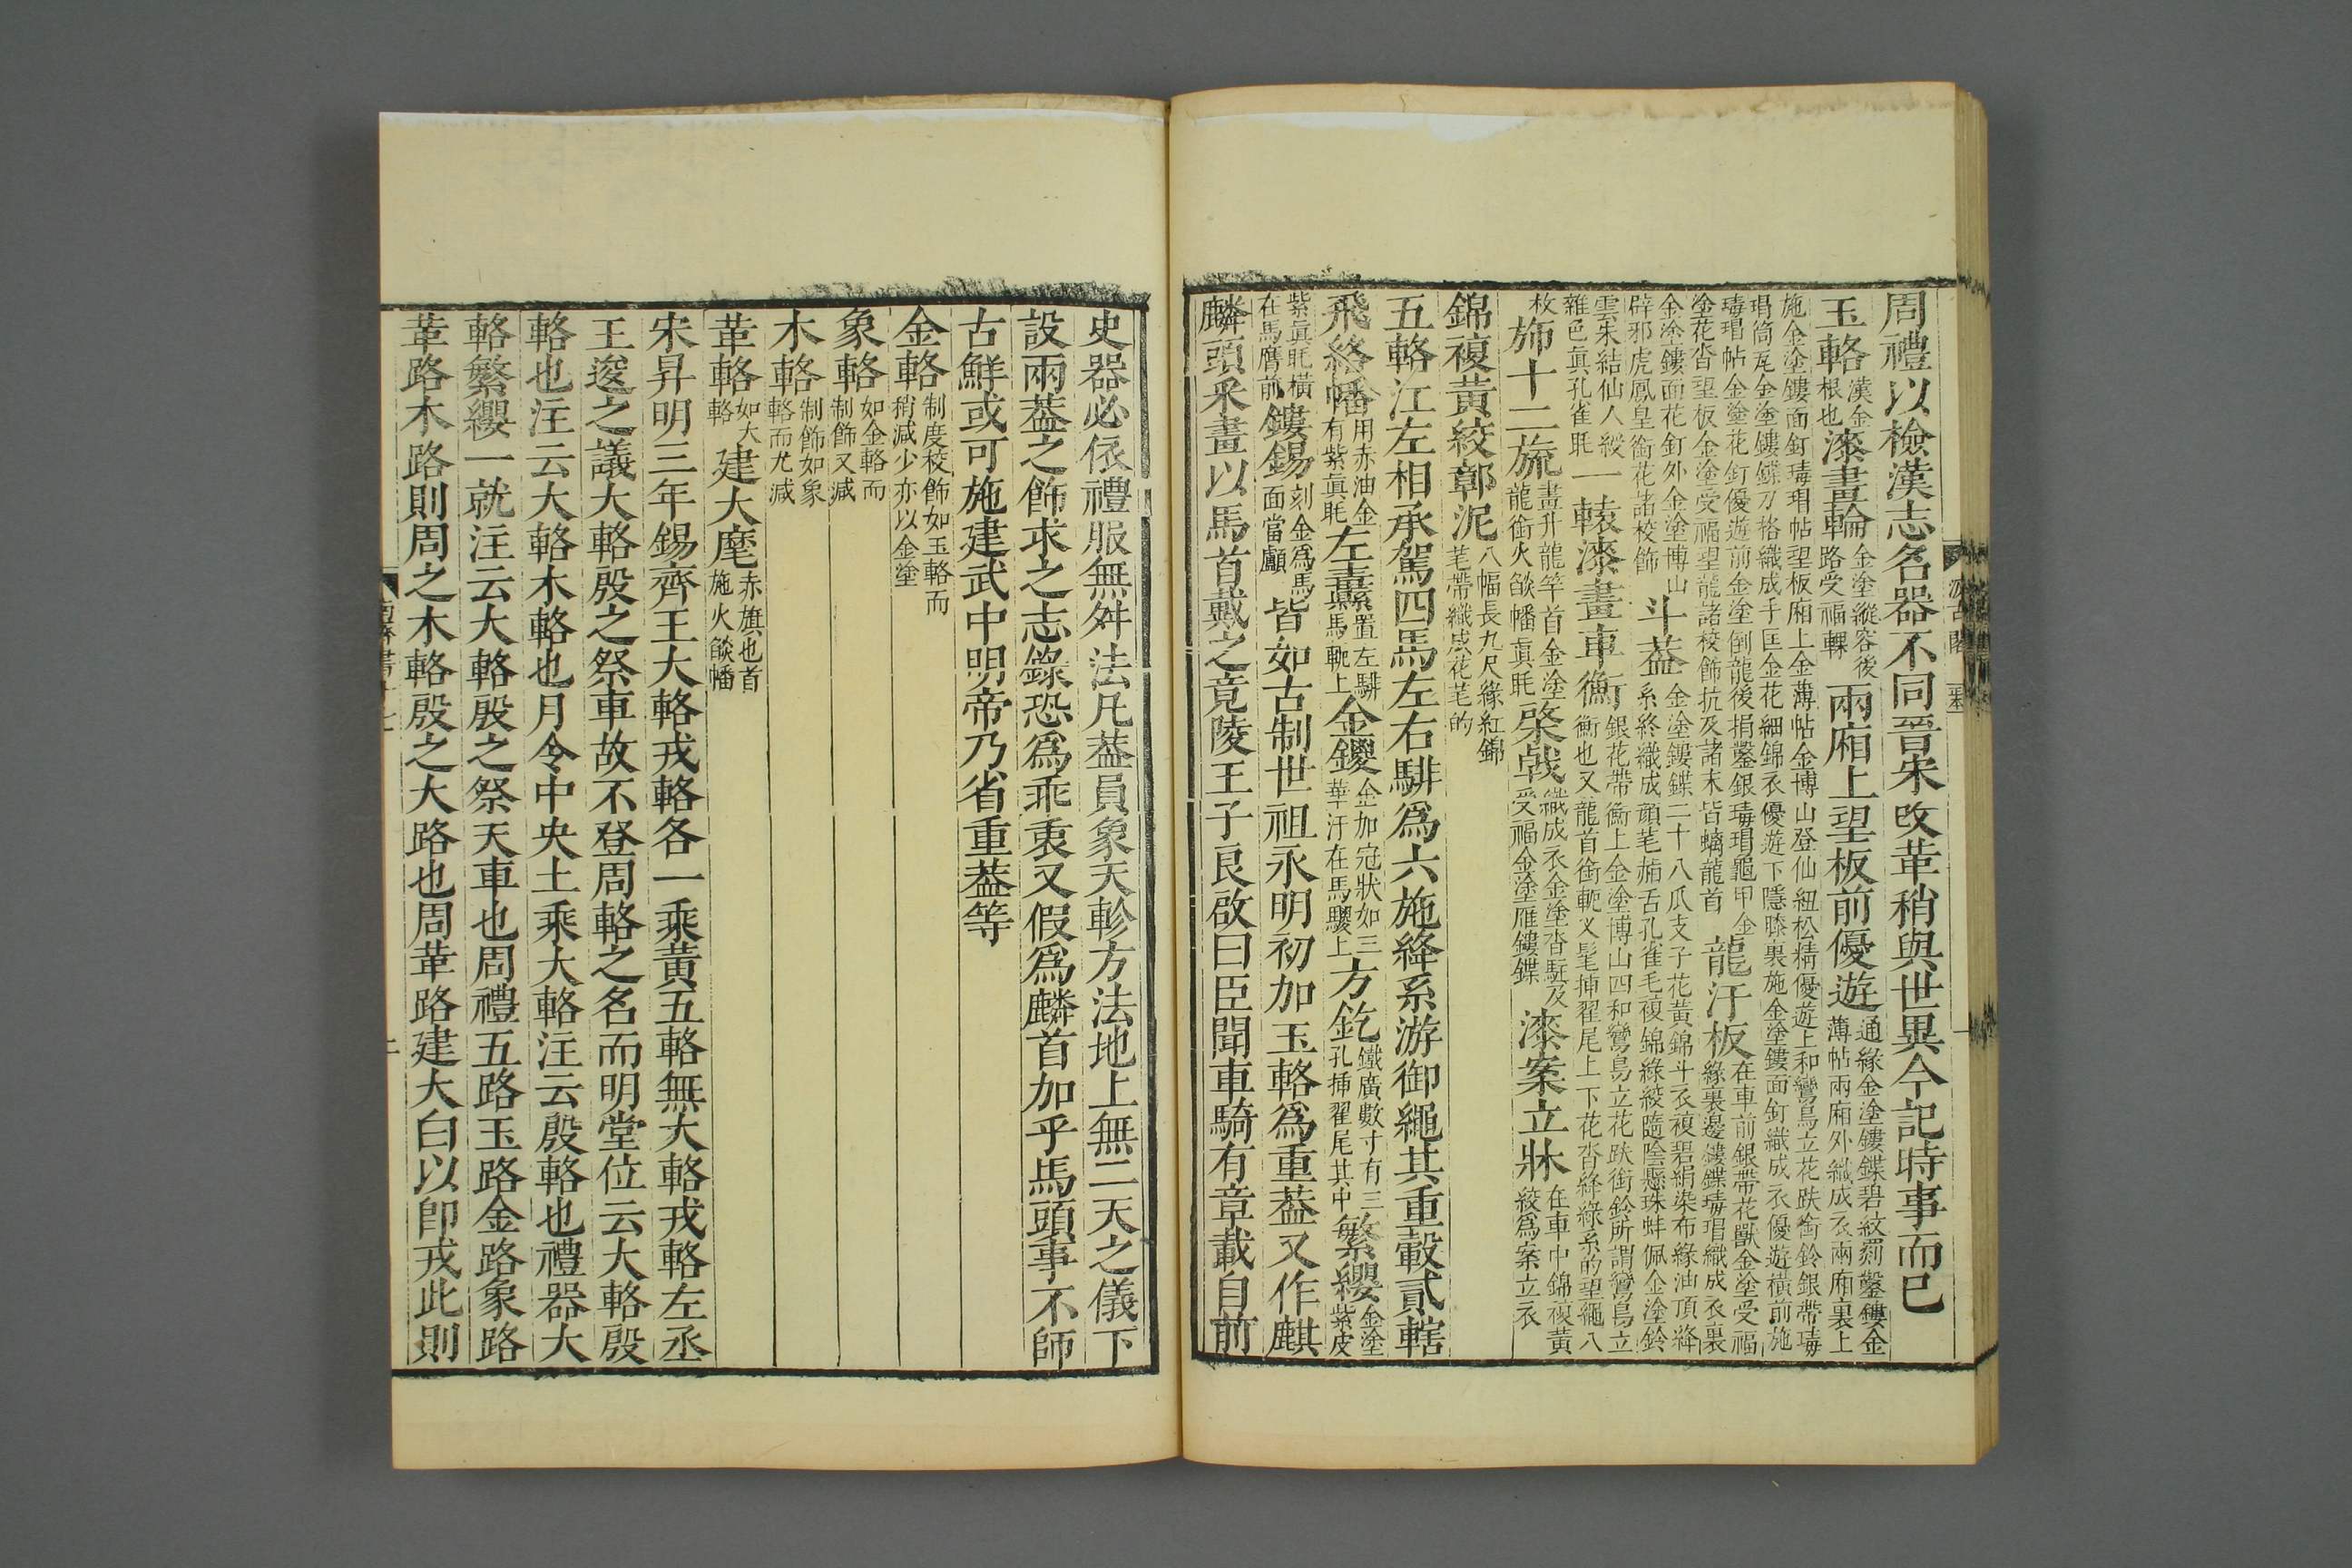 周禮以檢漢志名器不同晉宋改革稍與世異今記時事而已
玉輅漢金根也漆畫輪金塗縱容後路受福輠兩廂上望板前優遊通緣金塗鏤鍱碧紋箭鑿鏤金薄帖兩廂外織成衣兩廂裏上
施金塗鏤面釘瑇瑁帖望板廂上金薄帖金博山登仙紐松精優遊上和鸞鳥立花趺銜鈴銀帶瑇瑁筒瓦金塗鏤鍱刀格織成手匡金花細錦衣優遊下隱膝裏施金塗鏤面釘織成衣優遊橫前施
瑇瑁帖金塗花釘優遊前金塗倒龍後捎鑿銀瑇瑁龜甲金塗花沓望板金塗受福望龍諸校飾抗及諸末皆螭龍首龍汗板在車前銀帶花獸金塗受福緣裏邊鏤鍱瑇瑁織成衣裏
金塗鏤面花釘外金塗博山辟邪虎鳳皇銜花諸校飾斗蓋金塗鏤鍱二十八爪支子花黃錦斗衣複碧絹染布緣油頂絳系終織成顏芼𦇧舌孔雀毛複錦綠絞隨陰懸珠蚌佩金塗鈴
雲朱結仙人綬雜色眞孔雀眊一轅漆畫車衡銀花帶衡上金塗博山四和鸞鳥立花趺銜鈴所謂鸞鳥立衡也又龍首銜軛叉髦插翟尾上下花沓絳綠系的望繩八
枚旆十二旒畫升龍竿首金塗龍銜火㷔幡眞眊棨戟織成衣金塗沓駐及受福金塗雁鏤鍱漆案立牀在車中錦複黃絞爲案立衣
錦複黃絞鄣泥八幅長九尺緣紅錦芼帶織成花芼的
五輅江左相承駕四馬左右騑爲六施絳系游御繩其重轂貳轄
飛絡幡用赤油金有紫眞眊左纛置左騑馬軛上金鑁金加冠狀如三華汗在馬騣上方釳鐵廣數寸有三孔插翟尾其中繁纓金塗紫皮
紫眞眊橫在馬膺前鏤錫刻金爲馬面當顱皆如古制世祖永明初加玉輅爲重蓋又作麒
麟頭采畫以馬首戴之竟陵王子良啟曰臣聞車騎有章載自前
史器必依禮服無舛法凡蓋員象天軫方法地上無二天之儀下
設兩蓋之飾求之志錄恐爲乖衷又假爲麟首加乎馬頭事不師
古鮮或可施建武中明帝乃省重蓋等
金輅制度校飾如玉輅而稍減少亦以金塗
象輅如金輅而制飾又減
木輅制飾如象輅而尤減
革輅如大輅建大麾赤旗也首施火㷔幡
宋昇明三年錫齊王大輅戎輅各一乘黃五輅無大輅戎輅左丞
王逡之議大輅殷之祭車故不登周輅之名而明堂位云大輅殷
輅也注云大輅木輅也月令中央土乘大輅注云殷輅也禮器大
輅繁纓一就注云大輅殷之祭天車也周禮五路玉路金路象路
革路木路則周之木輅殷之大路也周革路建大白以卽戎此則
汲古閣